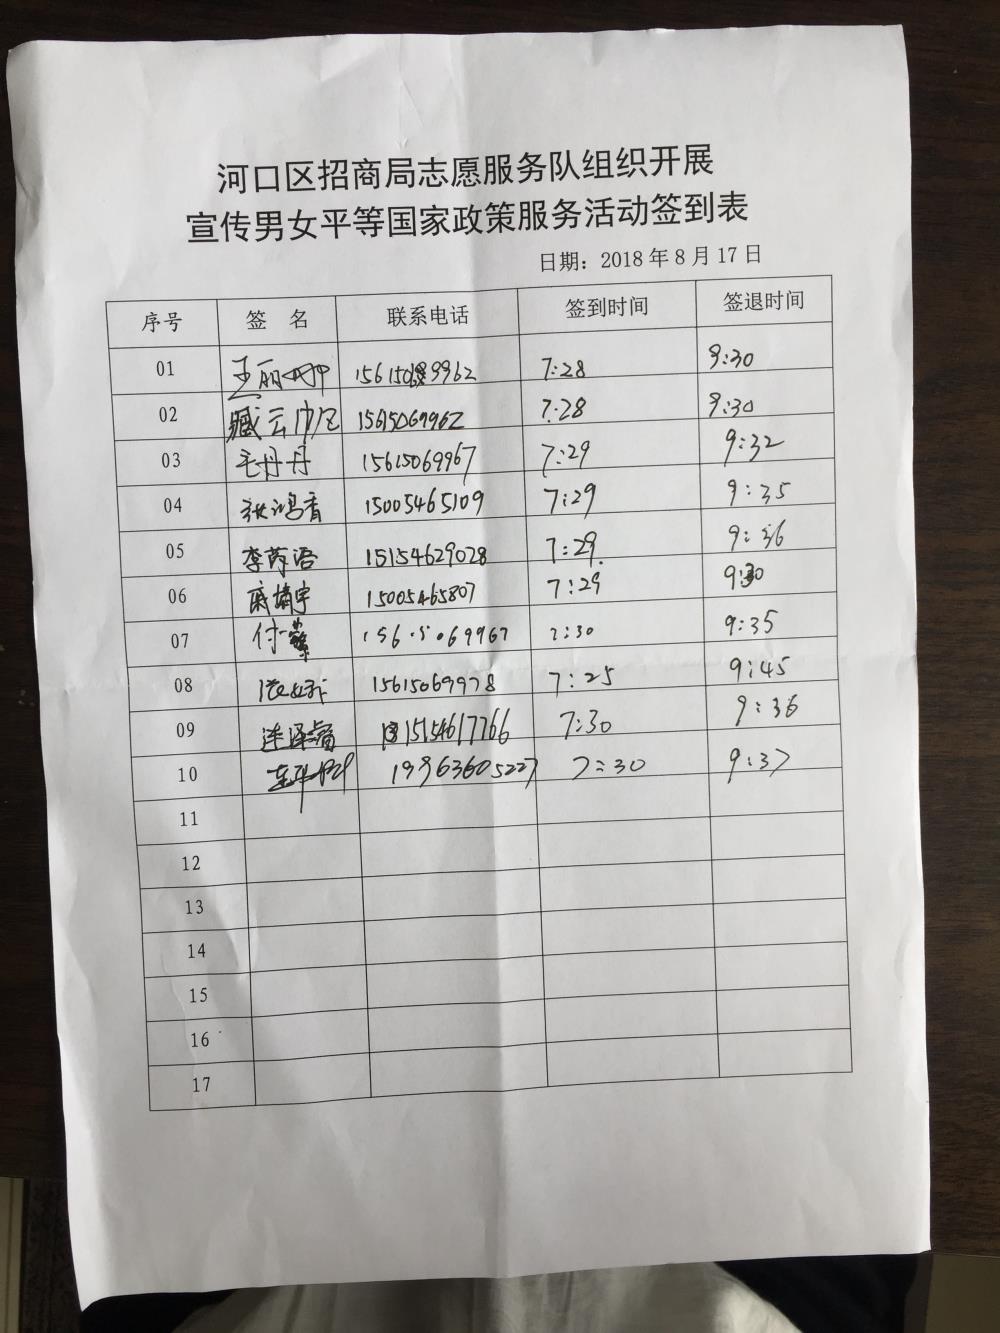 河口区招商局志愿服务队组织开展
宣传男女平等国家政策服务活动签到表
日期：2018年8月17日
序号 签 名 联系电话 签到时间 签退时间
01 王丽娜 7:28 9:30
02 臧云 15615069962 7:28 9:30
03 毛丹丹 15615069967 7:29 9:32
04 张鸿香 15005465109 7:29 9:35
05 李芮语 15154629028 7:29. 9:36
06 15005465807 7:29 9:30
07 付 15615069967 7:30 9:35
08 15615069978 7:25 9:45
09 15154617766 7:30 9:36
10 19963605227 7:30 9:37
11
12
13
14
15
16
17